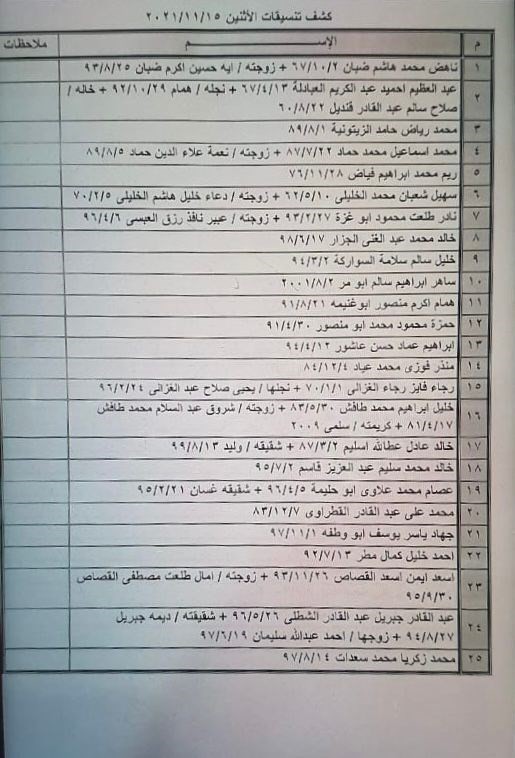 كشف تنسيقات الأثنين ٢٠٢١/١١/١٥
م الإســـــــم ملاحظات
١ ناهض محمد هاشم ضبان ٦٧/١٠/٢ + زوجته / ايه حسين اكرم ضبان ٩٣/٨/٢٥
٢ عبد العظيم احميد عبد الكريم العبادلة ٦٧/٤/١٣ + نجله / همام ٩٢/١٠/٢٩ + خاله /
صلاح سالم عبد القادر قنديل ٦٠/٨/٢٢
٣ محمد رياض حامد الزيتونية ٨٩/٨/١
٤ محمد اسماعيل محمد حماد ٨٧/٧/٢٢ + زوجته / نعمة علاء الدين حماد ٨٩/٨/٥
٥ ريم محمد ابراهيم فياض ٧٦/١١/٢٨
٦ سهيل شعبان محمد الخليلى ٦٢/٥/١٠ + زوجته / دعاء خليل هاشم الخليلى ٧٠/٢/٥
٧ نادر طلعت محمود ابو غزة ٩٣/٢/٢٧ + زوجته / عبير نافذ رزق العبسى ٩٦/٤/٦
٨ خالد محمد عبد الغنى الجزار ٩٨/٦/١٧
٩ خليل سالم سلامة السواركة ٩٤/٣/٢
١٠ ساهر ابراهيم سالم ابو مر ٢٠٠١/٨/٢
١١ همام اكرم منصور ابوغنيمه ٩١/٨/٢١
١٢ حمزة محمود محمد ابو منصور ٩١/٤/٣٠
١٣ ابراهيم عماد حسن عاشور ٩٤/٤/١٢
١٤ منذر فوزى محمد عياد ٨٤/١٢/٤
١٥ رجاء فايز رجاء الغزالى ٧٠/١/١ + نجلها / يحيى صلاح عبد الغزالى ٩٦/٢/٢٤
١٦ خليل ابراهيم محمد طافش ٨٣/٥/٣٠ + زوجته / شروق عبد السلام محمد طافش
٨١/٤/١٧ + كريمته / سلمى ٢٠٠٩
١٧ خالد عادل عطالله اسليم ٨٧/٣/٢ + شقيقه / وليد ٩٩/٨/١٣
١٨ خالد محمد سليم عبد العزيز قاسم ٩٥/٧/٢
١٩ عصام محمد علاوى ابو حليمة ٩٦/٤/٥ + شقيقه غسان ٩٥/٢/٢١
٢٠ محمد على عبد القادر القطراوى ٨٣/١٢/٧
٢١ جهاد ياسر يوسف ابو وطفه ٩٧/١١/١
٢٢ احمد خليل كمال مطر ٩٢/٧/١٣
٢٣ اسعد ايمن اسعد القصاص ٩٣/١١/٢٦ + زوجته / امال طلعت مصطفى القصاص
٩٥/٩/٣٠
٢٤ عبد القادر جبريل عبد القادر الشطلى ٩٦/٥/٢٦ + شقيقته / ديمه جبريل
٩٤/٨/٢٧ + زوجها / احمد عبدالله سليمان ٩٧/٦/١٩
٢٥ محمد زكريا محمد سعدات ٩٧/٨/١٤